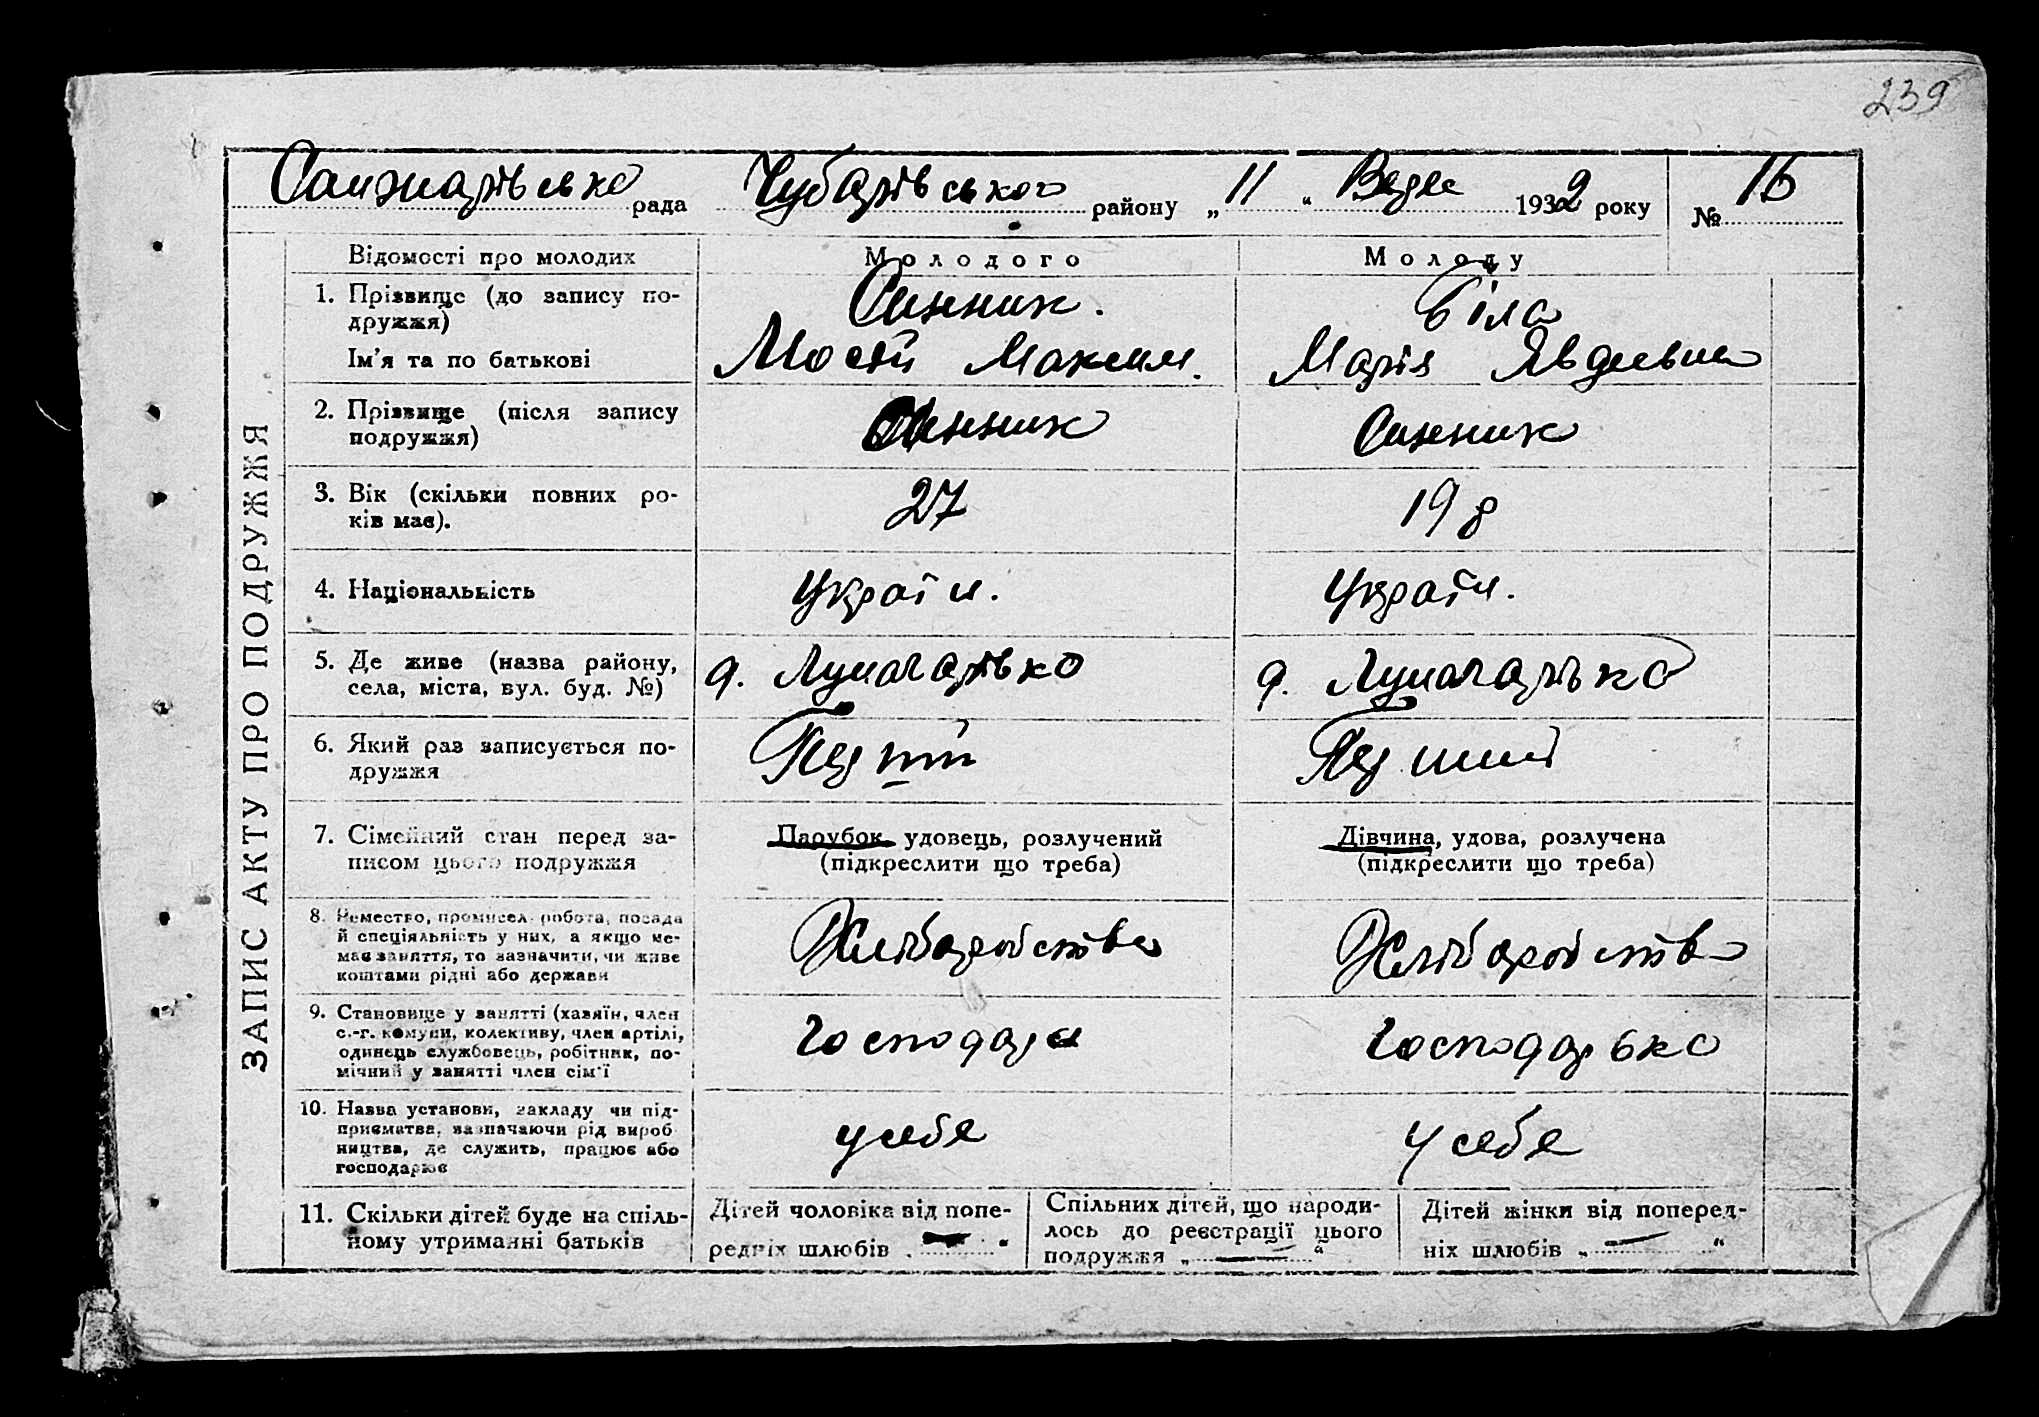 239
Санжарівська рада Чубарівського району „ 11 “ Верес 1932 року № 16
ЗАПИС АКТУ ПРО ПОДРУЖЖЯ
Відомості про молодих
Молодого
Молоду
1. Прізвище (до запису по-
дружжя)
Ім'я та по батькові
Санник.
Мосій Максим.
Біла
Марія Явдеевна
2. Прізвище (після запису
подружжя)
Санник
Санник
3. Вік (скільки повних ро-
ків має).
27
19 р
4. Національність
Україн.
Україн.
5. Де живе (назва району,
села, міста, вул. буд. №)
д.
д.
6. Який раз записується по-
дружжя
Перший
7. Сімейний стан перед за-
писом цього подружжя
Парубок, удовець, розлучений
(підкреслити що треба)
Дівчина, удова, розлучена
(підкреслити що треба)
8. Ремество, промисел робота, посада
й спеціяльність у них, а якщо не-
має заняття, то зазначити, чи живе
коштами рідні або держави
Хлібаробство
Хлібаробство
9. Становище у занятті (хазяїн, член
с.-г. комуни, колективу, член артілі,
одинець службовець, робітник, по-
мічний у занятті член сім'ї
Господар
Господарька
10. Назва установи, закладу чи під-
приємства, зазначаючи рід вироб
ництва, де служить, працює або
господарює
у себе
у себе
11. Скільки дітей буде на спіль-
ному утриманні батьків
Дітей чоловіка від попе-
редніх шлюбів „ — “
Спільних дітей, що народи-
лось до реєстрації цього
подружжя „ — “
Дітей жінки від поперед-
ніх шлюбів „ — “